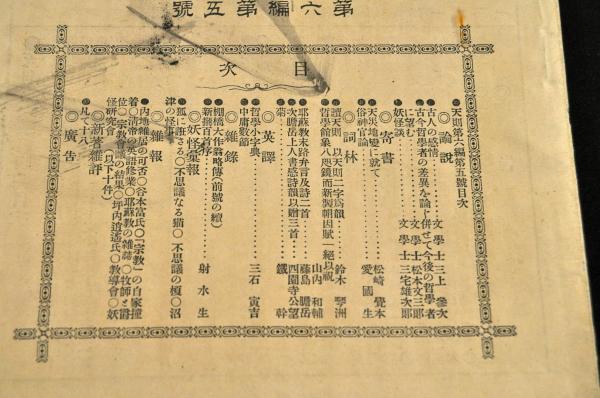 號五第編六第
次目
天則第六編第五號目次
◎論說
●古人の感情 文學士 三上參次
●古今哲學者の差異を論じ併せて今後の哲學者に望む 文學士 松本文三郎
●妖怪談 文學士 三宅雄次郎
◎寄書
●天災地變に就て 松崎覺本
●俗神官論 愛國生
◎詞林
●讀天則 以天則二字爲韻 鈴木
●哲學館 山內和輔
●耶蘇教末路弁言及詩二首 藤島
●次 岳上人書感詩韻以贈三首 四園寺公望
●菊 鐵幹
◎英譯
●哲學小字典 三石寅吉
●中庸數節
◎雜錄
●棚橋大作翁略傳(前號の續)
●新撰百首序 射水生
◎妖怪彙報
●狐に誑さる○不思議なる猫○不思議の榎○沼津の怪事
◎雜報
●內地雜居の可否○谷本富氏○「宗教」の自家撞着○淸帝の英語修業○耶蘇教の雜誌○牧師と爵位○宗教會議の結果○坪內逍遙氏○教導會○妖怪研究會(以下十件)
◎新著雜評
●凡そ十八
◎廣告